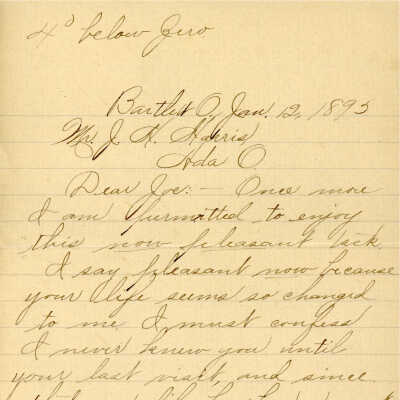 4° below Zero
Bartlett O, Jan. 12, 1895
Mr. J. H. Harris
Ada O
Dear Joe:- Once more
I am purmitted to enjoy
this now pleasant task.
I say pleasant now because
your life seems so changed
to me I must confess
I never knew you until
your last visit, and since